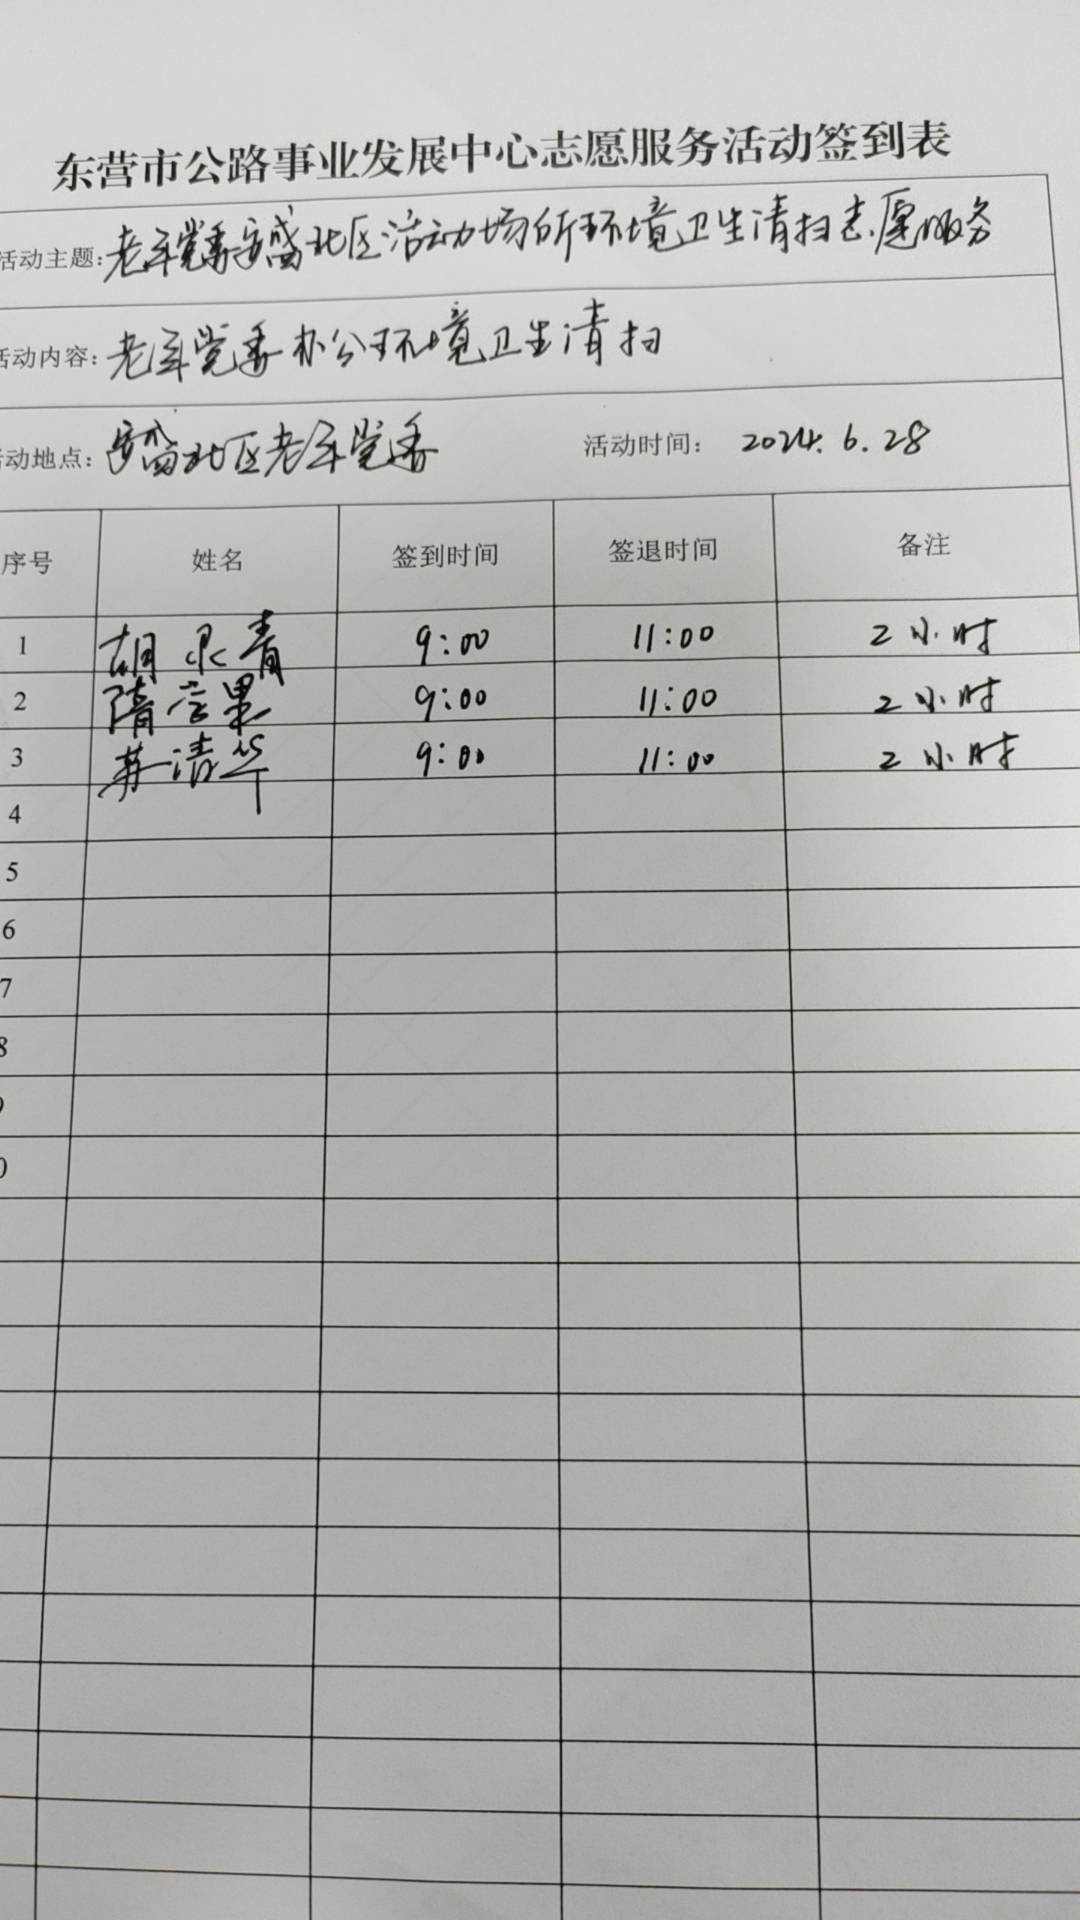 东营市公路事业发展中心志愿服务活动签到表
活动主题: 老年党委安盛北区活动场所环境卫生清扫志愿服务
活动内容: 老年党委办公环境卫生清扫
活动地点: 安盛北区老年党委 活动时间: 2024.6.28
序号 姓名 签到时间 签退时间 备注
1 胡永青 9:00 11:00 2小时
2 隋 9:00 11:00 2小时
3 苏清华 9:00 11:00 2小时
4
5
6
7
8
9
0